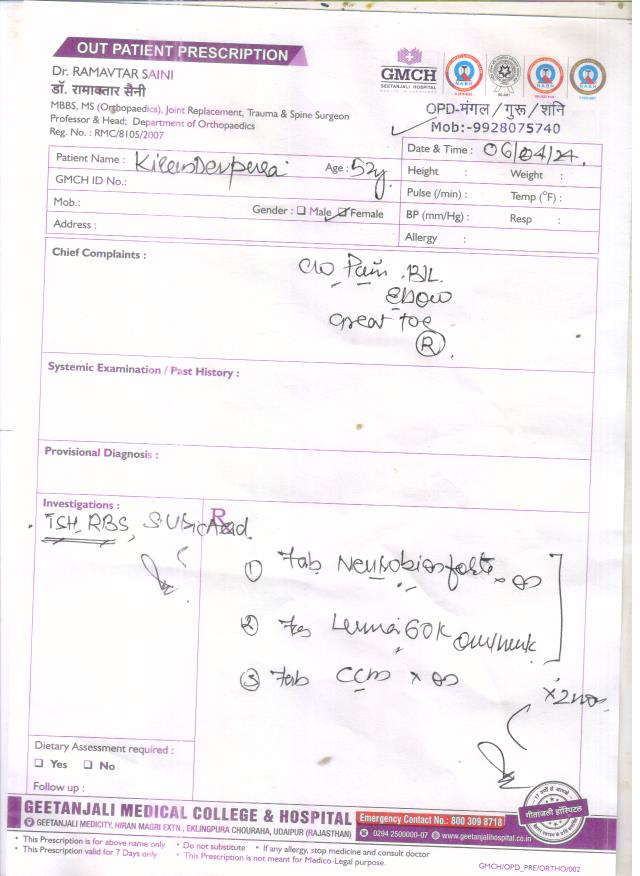 OUT PATIENT PRESCRIPTION
Dr. RAMAVTAR SAINI
डॉ. रामाक्तार सैनी
MBBS, MS (Orthopaedics), Joint Replacement, Trauma & Spine Surgeon
Professor & Head; Department of Orthopaedics
Reg. No. : RMC/8105/2007
GMCH
GEETANJALI HOSPITAL
OPD-मंगल / गुरू / शनि
Mob:-9928075740
Patient Name :
Age : 52y
Date & Time : 06/04/24
GMCH ID No.:
Height : Weight :
Mob.:
Gender : Male Female
Pulse (/min) : Temp (°F) :
Address :
BP (mm/Hg) : Resp :
Allergy :
Chief Complaints :
C/O Pain B/L
Elbow
Great toe
R
Systemic Examination / Past History :
Provisional Diagnosis :
Investigations :
TSH, RBS, S. Uric Acid
Rx
1 Tab Neurobion forte x OD
2 60K
3 Tab CCM x OD
Dietary Assessment required :
Yes No
Follow up :
गीतांजली हॉस्पिटल
GEETANJALI MEDICAL COLLEGE & HOSPITAL
GEETANJALI MEDICITY, HIRAN MAGRI EXTN., EKLINGPURA CHOURAHA, UDAIPUR (RAJASTHAN)
Emergency Contact No.: 800 309 8718
0294 2500000-07 www.geetanjalihospital.co.in
• This Prescription is for above name only • Do not substitute • If any allergy, stop medicine and consult doctor
• This Prescription valid for 7 Days only • This Prescription is not meant for Medico-Legal purpose.
GMCH/OPD_PRE/ORTHO/002